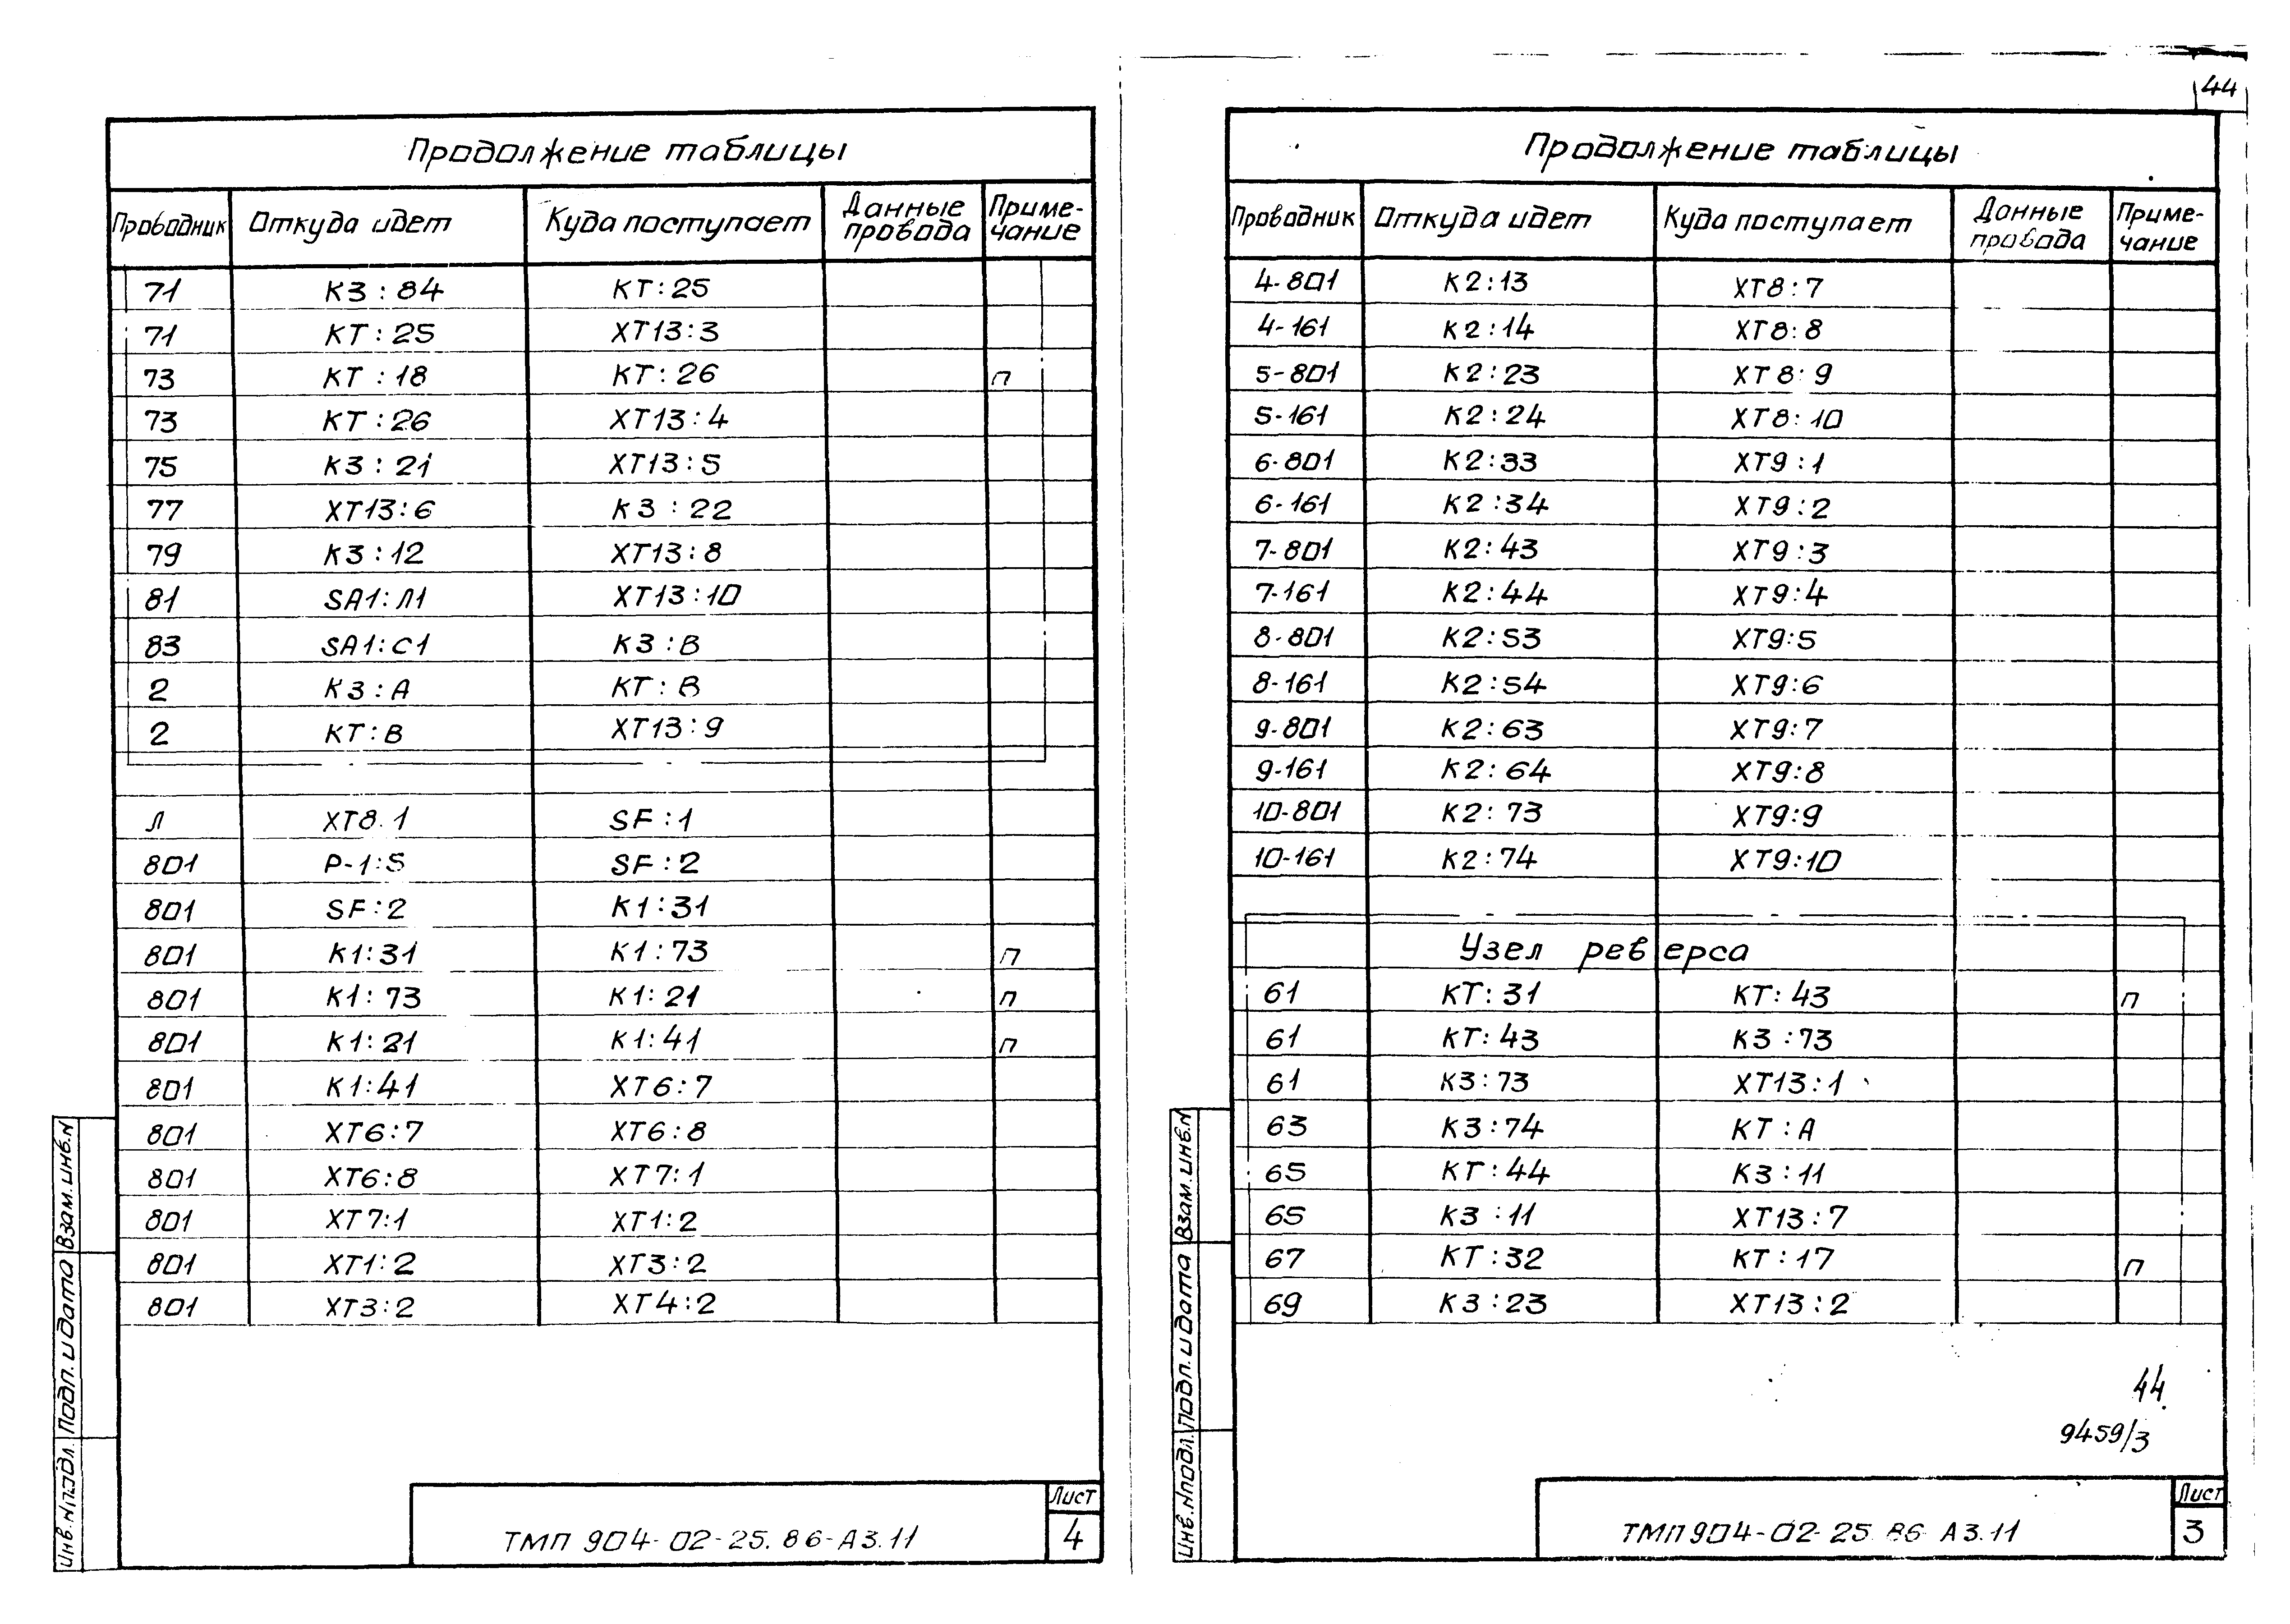 44
Продолжение таблицы
Проводник Откуда идет Куда поступает Данные провода Приме-чание
71 К3:84 КТ:25
71 КТ:25 ХТ13:3
73 КТ:18 КТ:26 п
73 КТ:26 ХТ13:4
75 К3:21 ХТ13:5
77 ХТ13:6 К3:22
79 К3:12 ХТ13:8
81 SA1:Л1 ХТ13:10
83 SA1:С1 К3:В
2 К3:А КТ:В
2 КТ:В ХТ13:9
Л ХТ8.1 SF:1
801 Р-1:5 SF:2
801 SF:2 К1:31
801 К1:31 К1:73 п
801 К1:73 К1:21 п
801 К1:21 К1:41 п
801 К1:41 ХТ6:7
801 ХТ6:7 ХТ6:8
801 ХТ6:8 ХТ7:1
801 ХТ7:1 ХТ1:2
801 ХТ1:2 ХТ3:2
801 ХТ3:2 ХТ4:2
Взам.инв.N
Подп. и дата
Инв.Nподл.
ТМП 904-02-25.86-А3.11
Лист
4
Продолжение таблицы
Проводник Откуда идет Куда поступает Данные провода Приме-чание
4-801 К2:13 ХТ8:7
4-161 К2:14 ХТ8:8
5-801 К2:23 ХТ8:9
5-161 К2:24 ХТ8:10
6-801 К2:33 ХТ9:1
6-161 К2:34 ХТ9:2
7-801 К2:43 ХТ9:3
7-161 К2:44 ХТ9:4
8-801 К2:53 ХТ9:5
8-161 К2:54 ХТ9:6
9-801 К2:63 ХТ9:7
9-161 К2:64 ХТ9:8
10-801 К2:73 ХТ9:9
10-161 К2:74 ХТ9:10
Узел реверса
61 КТ:31 КТ:43 п
61 КТ:43 К3:73
61 К3:73 ХТ13:1
63 К3:74 КТ:А
65 КТ:44 К3:11
65 К3:11 ХТ13:7
67 КТ:32 КТ:17 п
69 К3:23 ХТ13:2
44
9459/3
Взам.инв.N
Подп. и дата
Инв.Nподл.
ТМП 904-02-25.86-А3.11
Лист
3